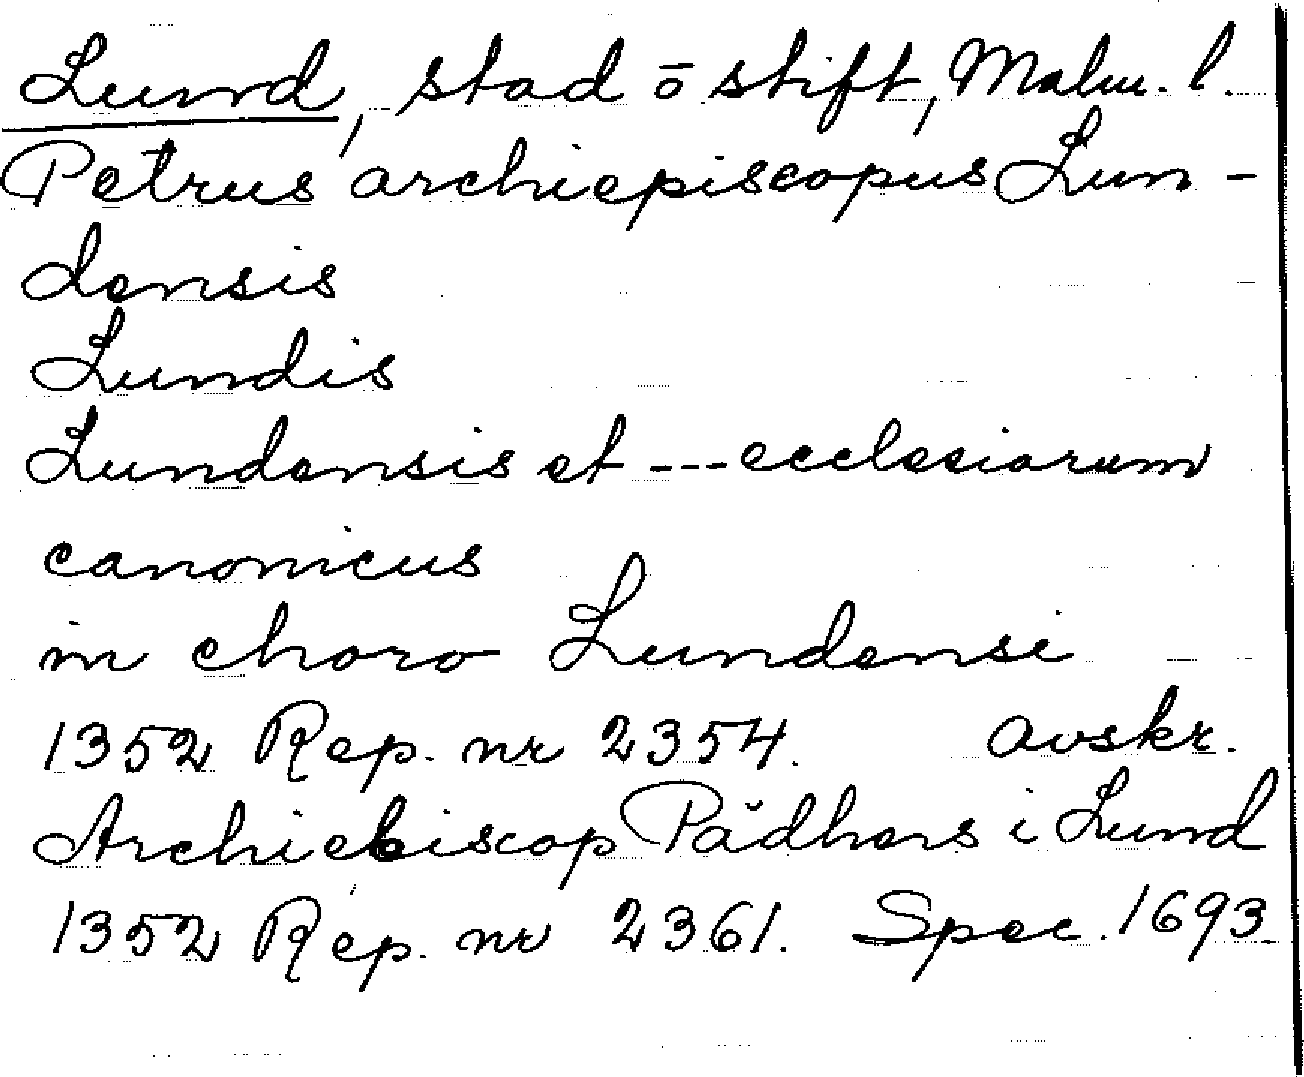 Lund, stad ō stift, Malm. l.
Petrus archiepiscopus Lun-
densis
Lundis
Lundensis et --- ecclesiarum
canonicus
in choro Lundensi
1352 Rep. nr 2354. avskr.
Archiebiscop Pădhers i Lund
1352 Rep. nr 2361. Spec. 1693